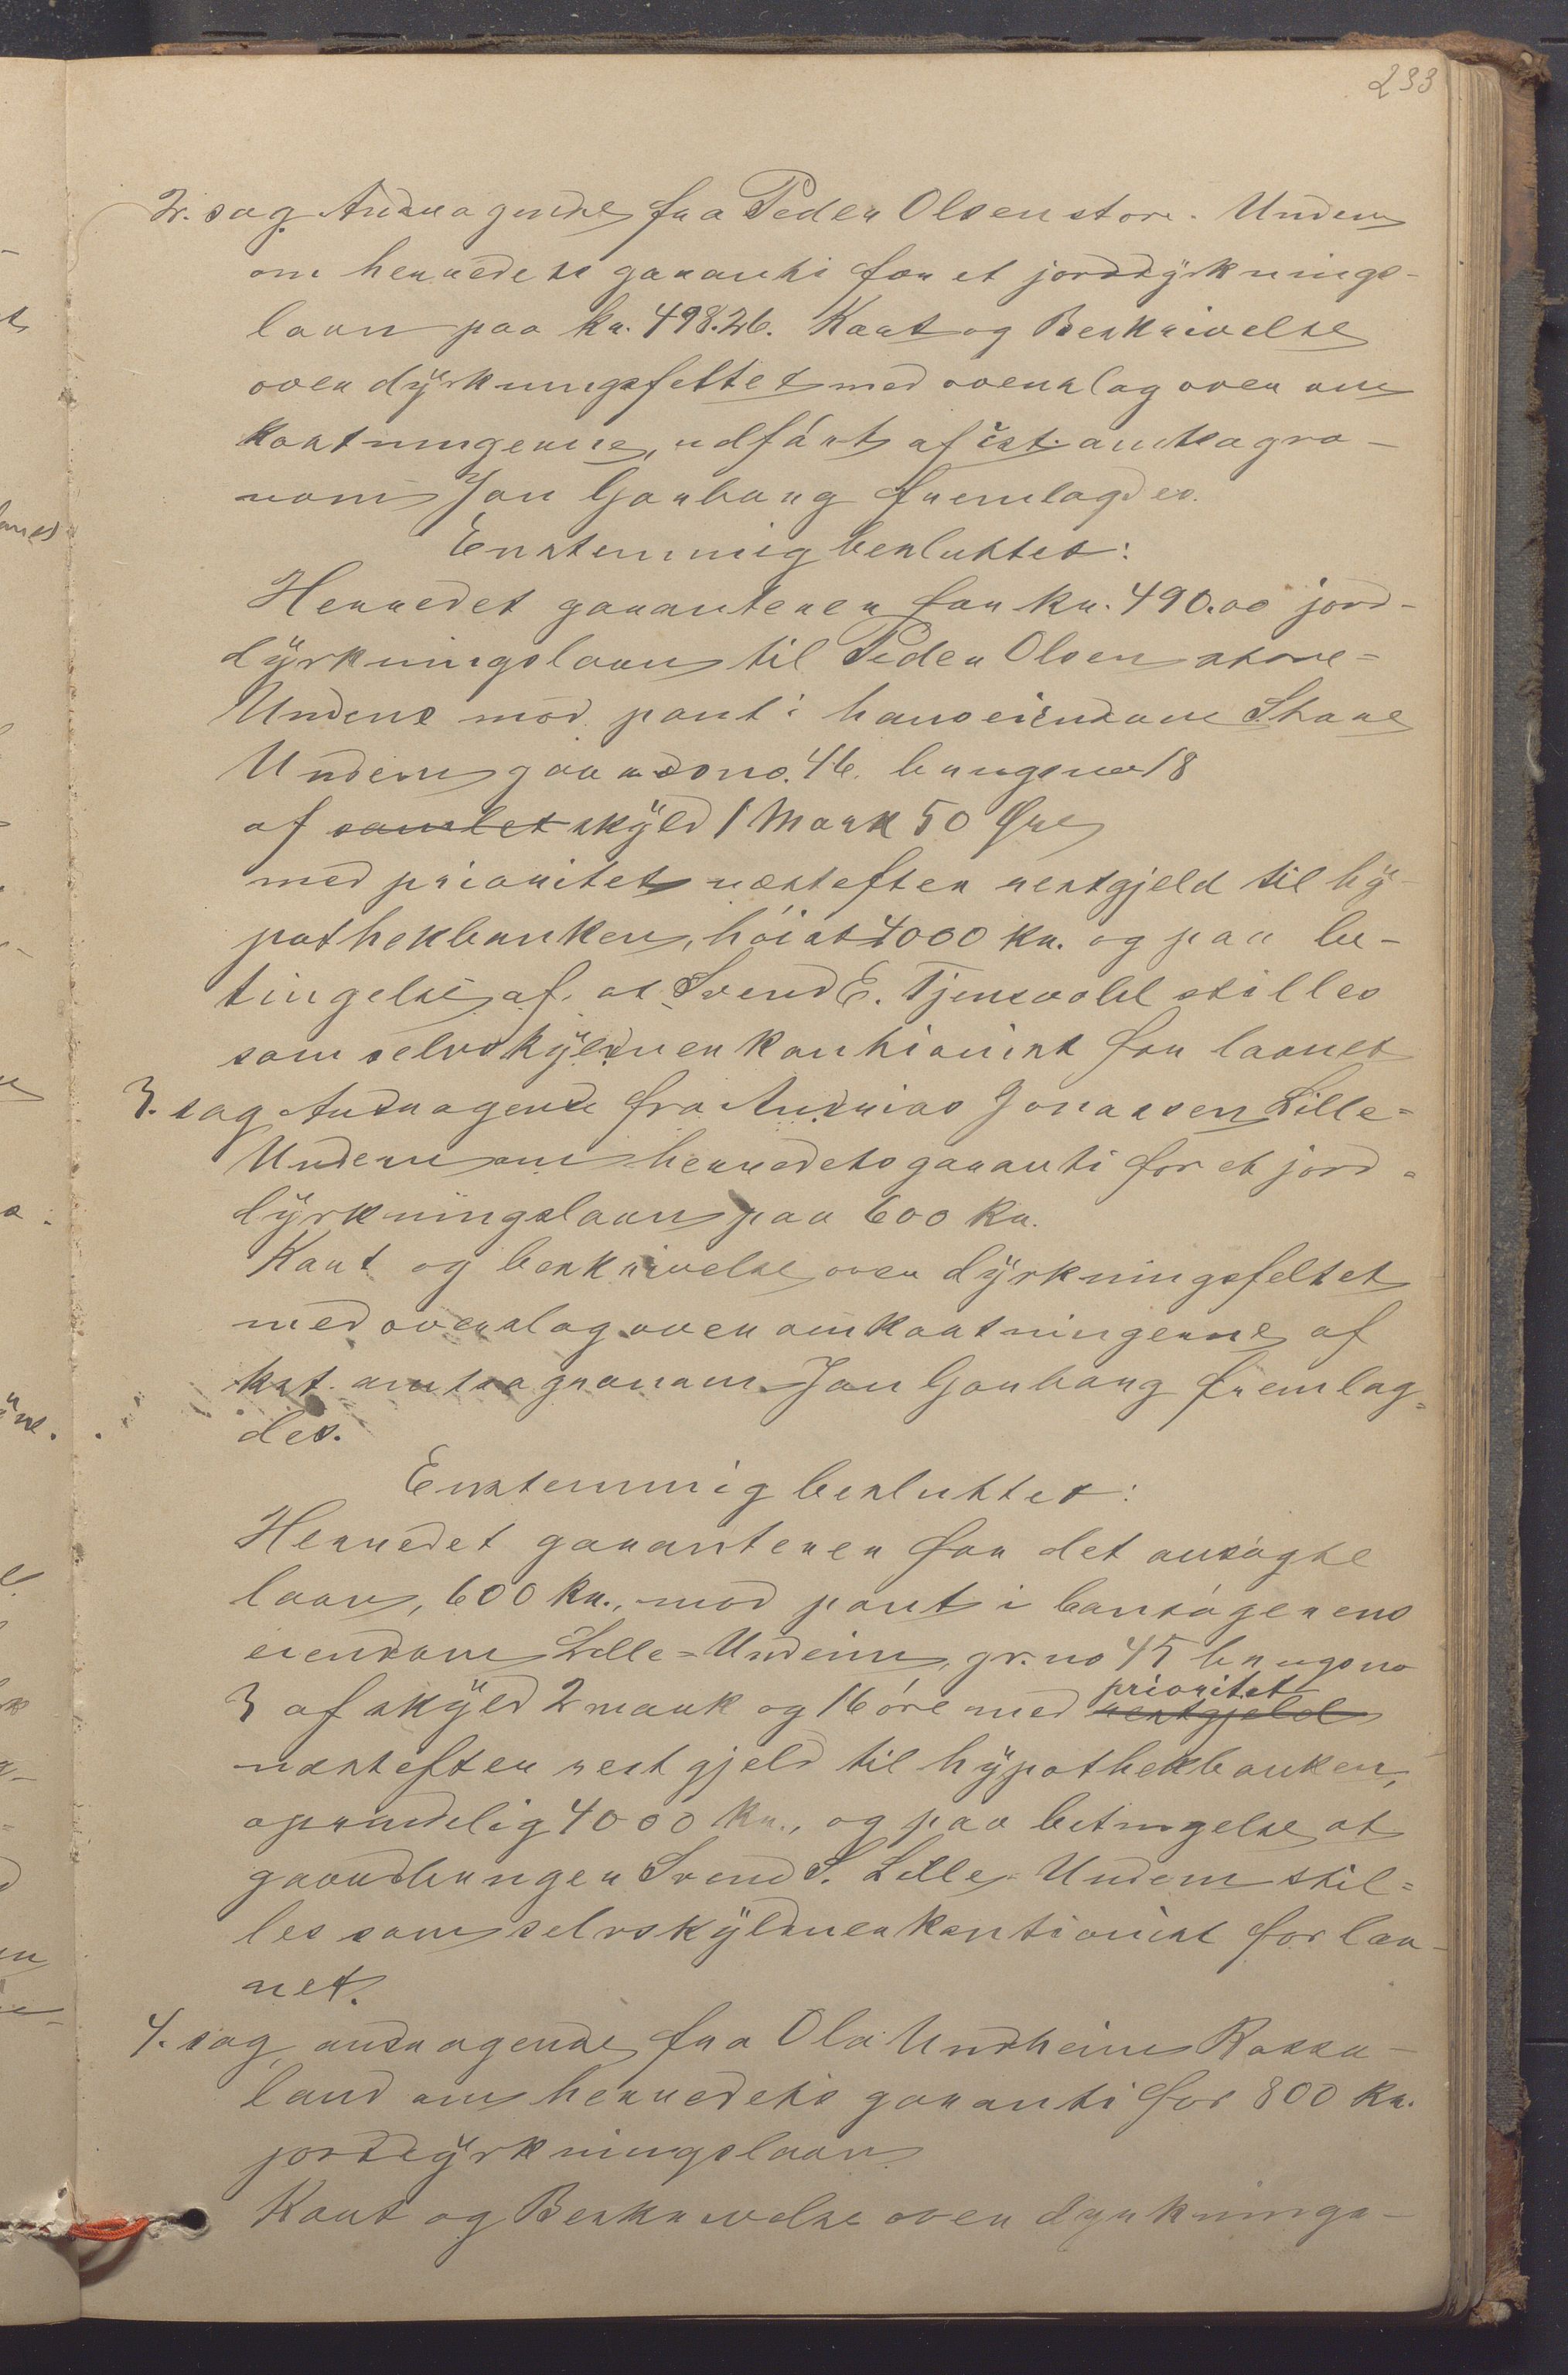 233
2. sag Andragende fra Peder Olsen store-Undem
om herredets garanti for et jorddÿrknings-
laan paa kr. 498.26. Kart og Beskrivelse
over dÿrkningsfeltet med overslag over om
kostningerne, udført af ist. amtsagro-
nom Jon Garborg fremlagdes.
Enstemmig besluttet:
Herredet garanterer for kr. 490.00 jord-
dÿrkningslaan til Peder Olsen store=
Undems mod pant i hans eiendom Store
Undem gaardsno. 46. brugsno 18
af samlet skÿld 1 Mark 50 Øre
med prioritet næstefter restgjeld til hÿ-
pothekbanken, høist 4000 kr. og paa be-
tingelse af, at Svend E. Tjensvold stilles
som selvskÿldner kautionist for laanet
3. sag Andragende fra Andreas Jonassen Lille=
Undem om herredets garanti for et jord=
dÿrkningslaan paa 600 kr.
Kart og beskrivelse over dÿrkningsfeltet
med overslag over omkostningerne af
kst. amtsagronom Jon Garborg fremlag=
des.
Enstemmig besluttet:
Herredet garanterer for det ansøgte
laan, 600 kr., mod pant i bansøgerens
eiendom Lille=Undeim, gr. no 45 brugsno
3 af skÿld 2 mark og 16 øre med restgjeld prioritet
næstefter restgjeld til hÿpothekbanken,
oprindelig 4000 kr., og paa betingelse at
gaardbruger Svend S. Lille-Undem stil=
les som selvskÿldnerkautionist for laa-
net.
4. sag, andragende fra Ola Undheim Rossa-
land om herredets garanti for 800 kr.
jorddÿrkningslaan
Kart og Beskrivelse over dyrknings-